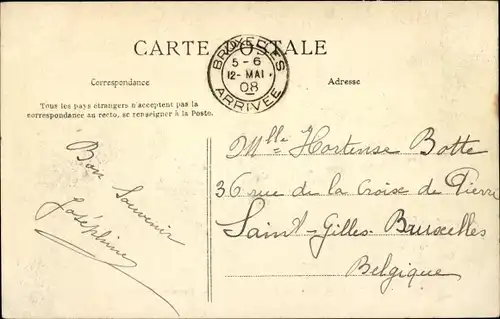 CARTE POSTALE
BRUXELLES
5-6
12-MAI
08
ARRIVÉE
Correspondance
Adresse
Tous les pays étrangers n'acceptent pas la
correspondance au recto, se renseigner à la Poste.
Bon Souvenir
Joséphine
Mlle Hortense Botte
36 rue de la Croix de Pierre
Saint-Gilles-Bruxelles
Belgique